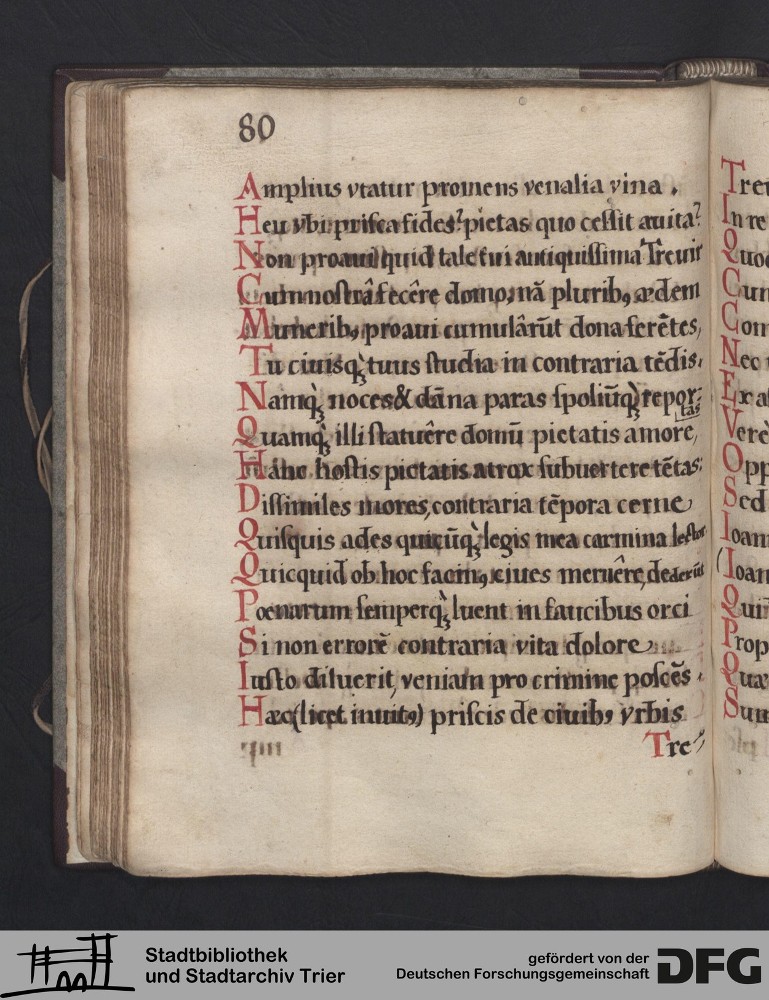 80
Amplius vtatur promens venalia vina .
Heu vbi prisca fides? pietas quo cessit auita?
Non proaui quid tale tui antiquissima Treuir
Cum nostrâ fecêre domo; nā pluribꝯ ædem
Muneribꝯ proaui cumulârūt dona ferētes,
Tu ciuisq̀ꝫ tuus studia in contraria tēdis.
Namq̀ꝫ noces & dāna paras spoliūq̀ꝫ repor-
tas
Quamq̀ꝫ illi statuêre domū pietatis amore,
Hanc hostis pietatis atrox subuertere tētas;
Dissimiles mores, contraria tēpora cerne
Quisquis ades quicūq̀ꝫ legis mea carmina lector
Quicquid ob hoc facinꝯ, ciues meruêre, dederūt
Poenarum semperq̀ꝫ luent in faucibus orci
Si non errorē contraria vita dolore
Iusto diluerit, veniam pro crimine poscēs .
Hæc (licet inuitꝯ) priscis de ciuibꝯ vrbis
Tre-
Treu
In re
Quod
Cun
Com
Nec
Ex a
Verè
Opp
Sed
Ioan
(Ioan
Quin
Prop
Quæ
Sun
Stadtbibliothek
und Stadtarchiv Trier
gefördert von der
Deutschen Forschungsgemeinschaft
DFG